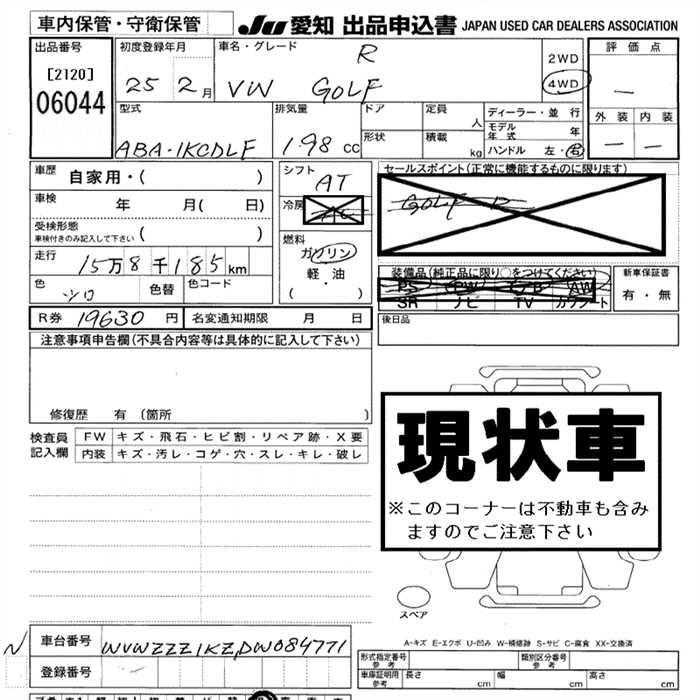 車内保管・守衛保管
JU 愛知 出品申込書 JAPAN USED CAR DEALERS ASSOCIATION
出品番号 初度登録年月 車名・グレード R 2WD 評価点
[2120] 25 2月 VW GOLF 4WD —
06044
型式 排気量 ドア 定員 人 ディーラー・並行 外装 内装
ABA・1KCDLF 1.98 cc 形状 積載 kg モデル年式 年 — —
ハンドル 左・右
車歴 自家用・( ) シフト AT セールスポイント(正常に機能するものに限ります)
車検 年 月( 日) 冷房 AC GOLF R
受検形態 ( )
車検付きのみ記入して下さい
燃料 ガソリン
走行 15万8千185km 軽・油 装備品(純正品に限り○をつけてください) 新車保証書
色 シロ 色替 色コード ( ・ ) PS PW エアB AW 有・無
SR ナビ TV カワシート
R券 19630 円 名変通知期限 月 日 後日品
注意事項申告欄(不具合内容等は具体的に記入して下さい)
修復歴 有(箇所 )
現状車
※このコーナーは不動車も含み
ますのでご注意下さい
検査員 FW キズ・飛石・ヒビ割・リペア跡・X要
記入欄 内装 キズ・汚レ・コゲ・穴・スレ・キレ・破レ
スペア
A-キズ E-エクボ U-凹み W-補修跡 S-サビ C-腐食 XX-交換済
N 車台番号 WVWZZZ1KZDW084771
登録番号
形式指定番号 参考 類別区分番号 参考
車庫証明用 参考 長さ cm 幅 cm 高さ cm